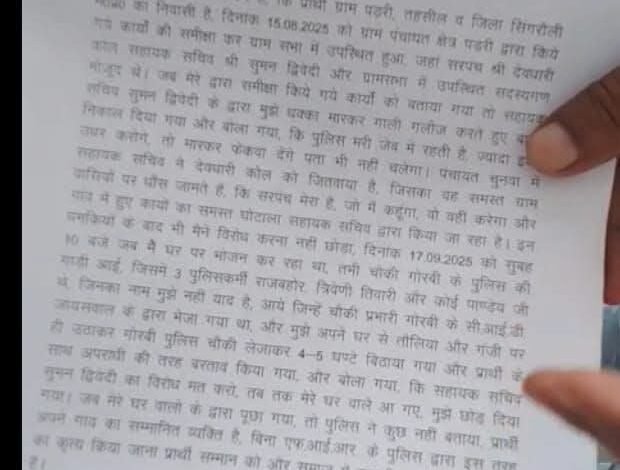 प्रार्थी ग्राम पड़री, तहसील व जिला सिंगरौली
का निवासी है, दिनांक 15.08.2025 को ग्राम पंचायत क्षेत्र पड़री द्वारा किये
गये कार्यो की समीक्षा कर ग्राम सभा में उपस्थित हुआ, जहां सरपंच श्री देवधारी
कोल सहायक सचिव श्री सुमन द्विवेदी और ग्रामसभा में उपस्थित सदस्यगण
मौजूद थे। जब मेरे द्वारा समीक्षा किये गये कार्यो को बताया गया तो सहायक
सचिव सुमन द्विवेदी के द्वारा मुझे धक्का मारकर गाली गलौज करते हुए
निकाल दिया गया और बोला गया, कि पुलिस मेरी जेब में रहती है, ज्यादा
उधर करोगे, तो मारकर फेंकवा देंगे पता भी नही चलेगा। पंचायत चुनवा में
सहायक सचिव ने देवधारी कोल को जितवाया है, जिसका वह समस्त ग्राम
वासियों पर धौंस जामते है, कि सरपंच मेरा है, जो मैं कहूंगा, वो वही करेगा और
गाव में हुए कार्यो का समस्त घोटाला सहायक सचिव द्वारा किया जा रहा है। इन
धमकियो के बाद भी मैने विरोध करना नही छोड़ा, दिनांक 17.09.2025 को सुबह
10 बजे जब मै घर पर भोजन कर रहा था, तभी चौकी गोरबी के पुलिस की
गाड़ी आई, जिसमे 3 पुलिसकर्मी राजबहोर त्रिवेणी तिवारी और कोई पाण्डेय जी
थे, जिनका नाम मुझे नही याद है, आये जिन्हे चौकी प्रभारी गोरबी के सी.आई.डी.
जायसवाल के द्वारा भेजा गया था, और मुझे अपने घर से तौलिया और गंजी पर
ही उठाकर गोरबी पुलिस चौकी लेजाकर 4–5 घण्टे बिठाया गया और प्रार्थी के
साथ अपराधी की तरह बरताव किया गया, और बोला गया, कि सहायक सचिव
सुमन द्विवेदी का विरोध मत करो, तब तक मेरे घर वाले आ गए, मुझे छोड़ दिया
गया। जब मेरे घर वालो के द्वारा पूछा गया, तो पुलिस ने कुछ नही बताया, प्रार्थी
अपने गाव का सम्मानित व्यक्ति है, बिना एफ.आई.आर के पुलिस द्वारा इस तरह
का कृत्य किया जाना प्रार्थी सम्मान को और समाज
है।